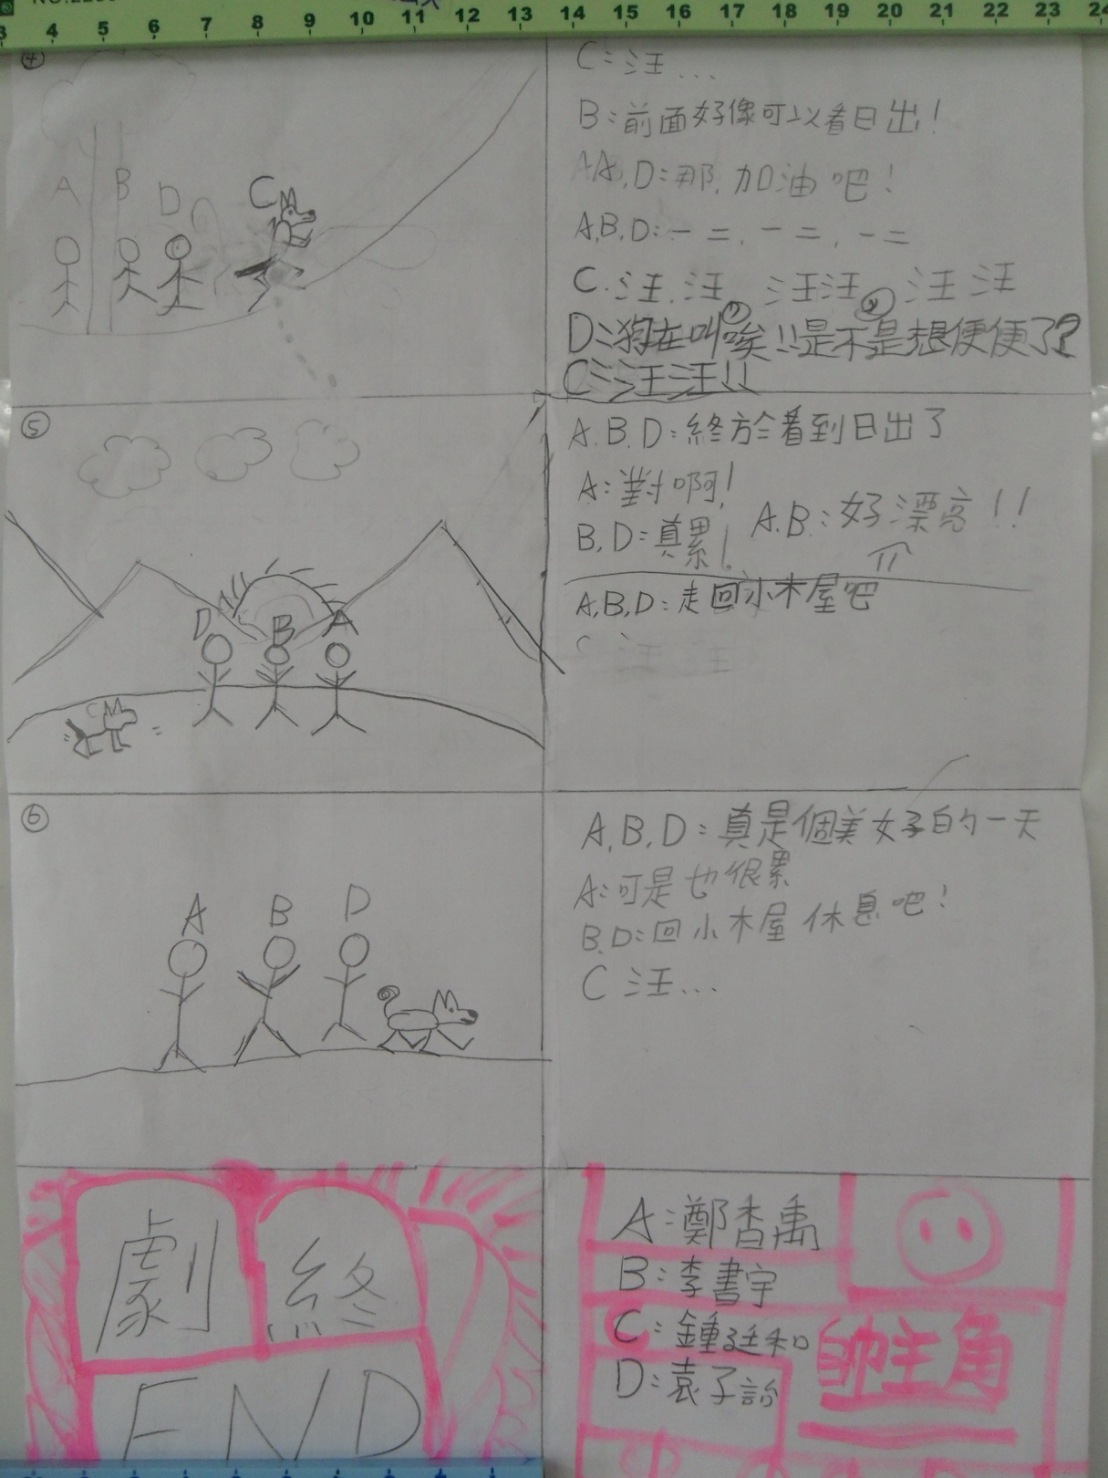 3 4 5 6 7 8 9 10 11 12 13 14 15 16 17 18 19 20 21 22 23 24
④
A B D C
C:汪...
B:前面好像可以看日出!
A,D:那,加油吧!
A,B,D:一二,一二,一二
C.汪.汪 汪汪 汪汪
D:狗在叫唉!!是不是想便便了?
C:汪汪!!
⑤
D B A
C
A.B.D:終於看到日出了
A:對啊!
B,D:真累!
A.B:好漂亮!!
A,B,D:走回小木屋吧
⑥
A B D
A,B,D:真是個美好的一天
A:可是也很累
B.D:回小木屋休息吧!
C 汪...
劇終
END
A:鄭香禹
B:李書宇
C:鍾廷和
D:袁子詒
帥主角